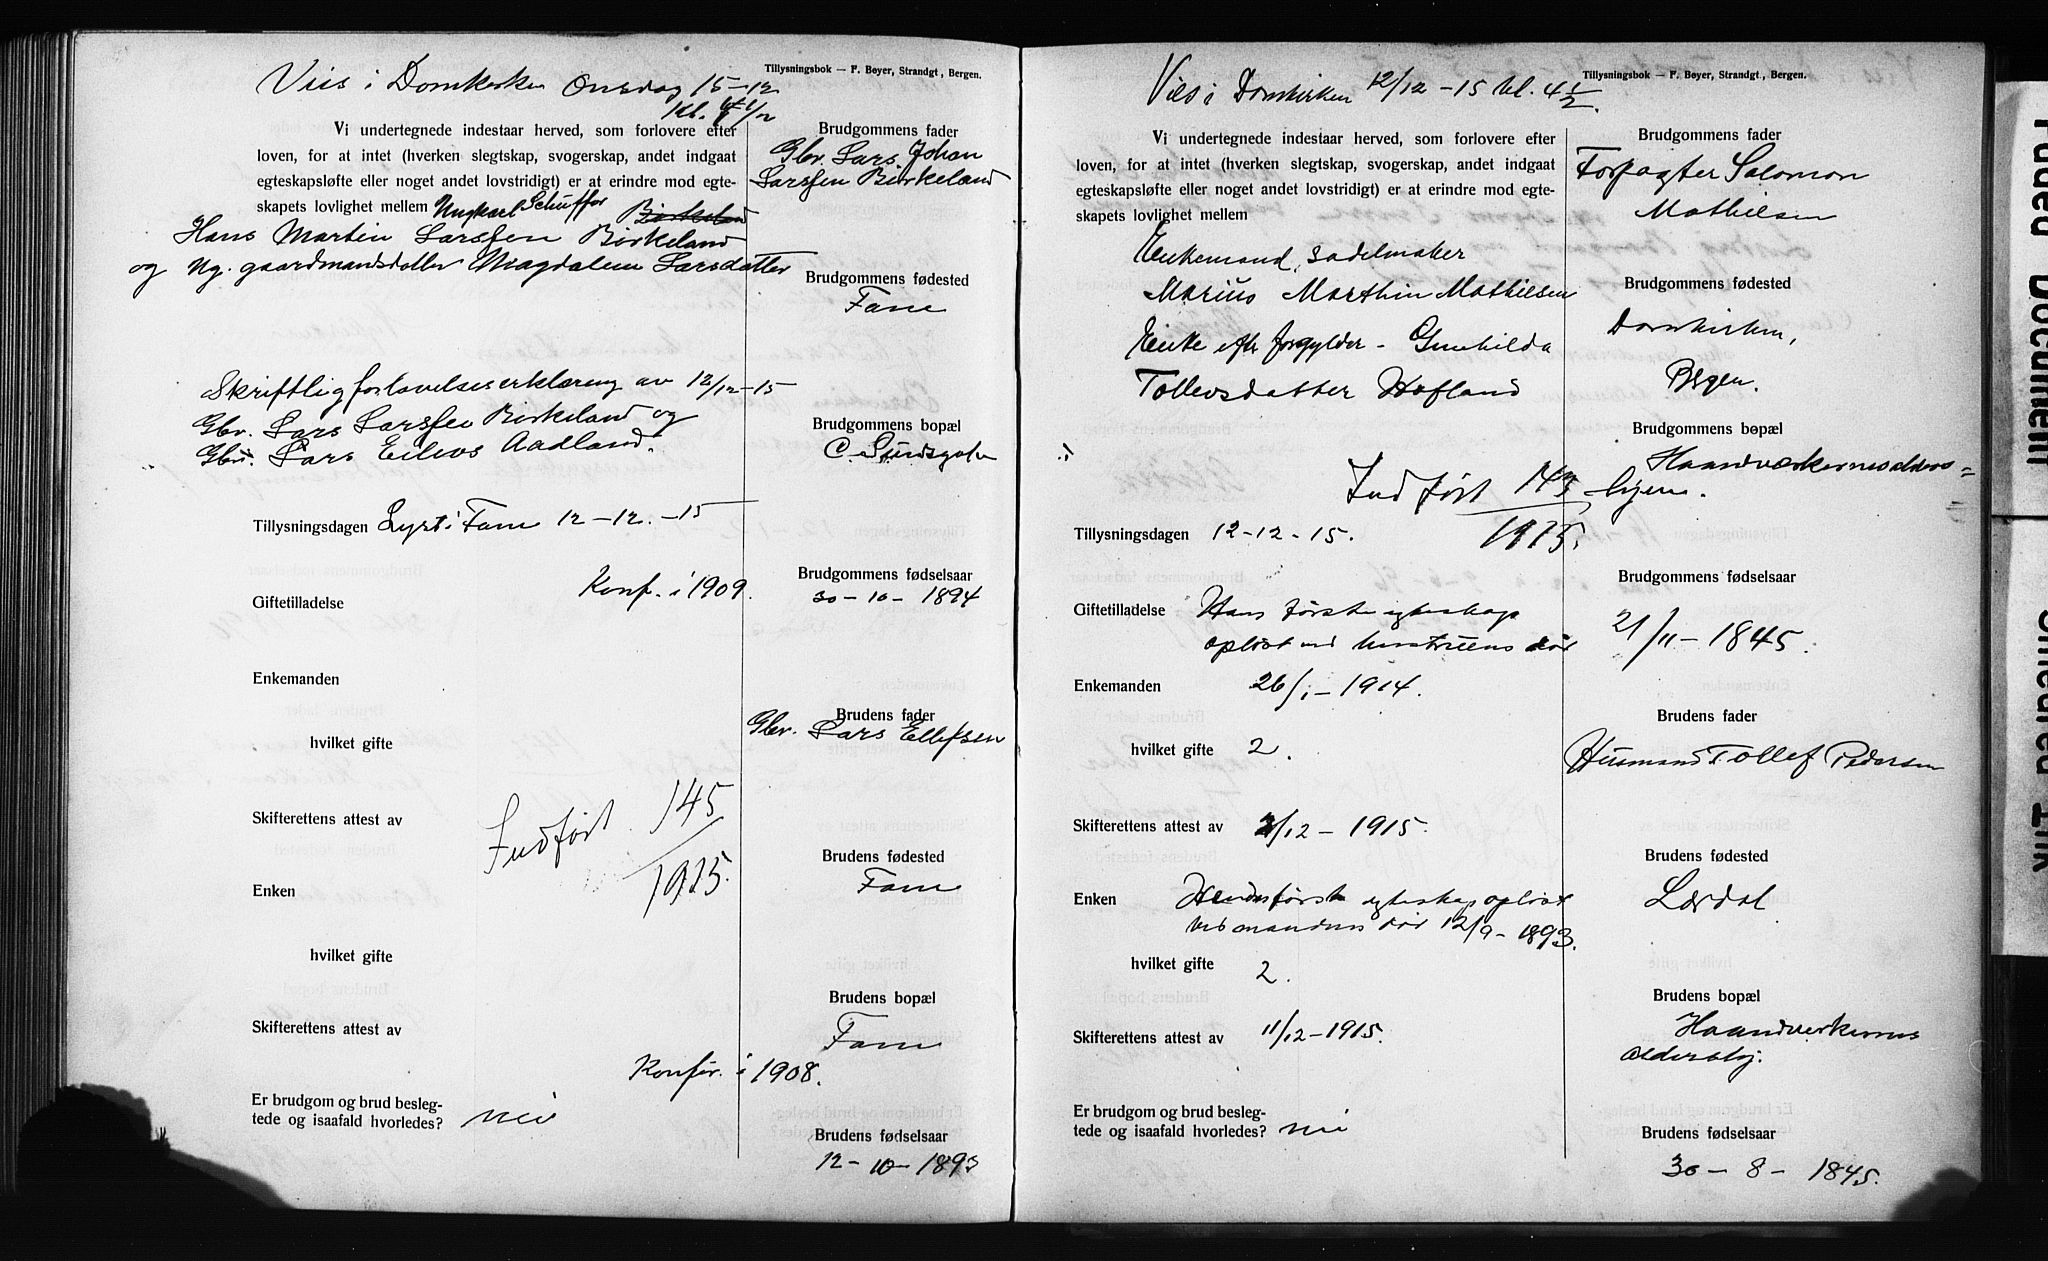 Tillysningsbok — F. Beyer, Strandgt, Bergen.
Vies i Domkirken Onsdag 15-12
kl. 4 1/2
Vi undertegnede indestaar herved, som forlovere efter
loven, for at intet (hverken slegtskap, svogerskap, andet indgaat
egteskapsløfte eller noget andet lovstridigt) er at erindre mod egte-
skapets lovlighet mellem Ungkarl Schuffør Birkeland
Hans Martin Larssen Birkeland
og Ug. gaardmandsdatter Magdalene Larsdatter
Skriftlig forlovelseserklæring av 12/12-15
Gbr. Lars Larssen Birkeland og
Gbr. Lars Eilevs Aadland.
Tillysningsdagen Lyst i Fane 12-12.-15
Konf. i 1909.
Giftetilladelse
Enkemanden
hvilket gifte
Skifterettens attest av
Indført 145
1915.
Enken
hvilket gifte
Skifterettens attest av
Konfir. i 1908.
Er brudgom og brud besleg-
tede og isaafald hvorledes? nei
Brudgommens fader
Gbr. Lars Johan
Larssen Birkeland
Brudgommens fødested
Fane
Brudgommens bopæl
C. Sundsgate
Brudgommens fødselsaar
30-10-1894
Brudens fader
Gbr. Lars Ellefsen
Brudens fødested
Fane
Brudens bopæl
Fane
Brudens fødselsaar
12-10-1893
Tillysningsbok — F. Beyer, Strandgt, Bergen.
Vies i Domkirken 12/12-15 kl. 4 1/2.
Vi undertegnede indestaar herved, som forlovere efter
loven, for at intet (hverken slegtskap, svogerskap, andet indgaat
egteskapsløfte eller noget andet lovstridigt) er at erindre mod egte-
skapets lovlighet mellem
Enkemand, sadelmaker
Marius Marthin Mathiesen
Enke efter forgylder - Gunhilda
Tollevsdatter Hofland
Indført 143
1915.
Tillysningsdagen 12-12-15.
Giftetilladelse Hans første egteskap
opløst ved hustruens død
Enkemanden 26/1-1914.
hvilket gifte 2.
Skifterettens attest av 3/12-1915.
Enken Hendes første egteskap opløst
ved mandens død 12/9-1893.
hvilket gifte 2.
Skifterettens attest av 11/12-1915.
Er brudgom og brud besleg-
tede og isaafald hvorledes? nei
Brudgommens fader
Forpagter Salomon
Mathiesen
Brudgommens fødested
Domkirken,
Bergen.
Brudgommens bopæl
Haandværkernes alders=
hjem.
Brudgommens fødselsaar
21/11-1845.
Brudens fader
Husmand Tollef Pedersen
Brudens fødested
Lærdal
Brudens bopæl
Haandverkernes
aldershj.
Brudens fødselsaar
30-8-1845.
Faded Document
Smeared Ink